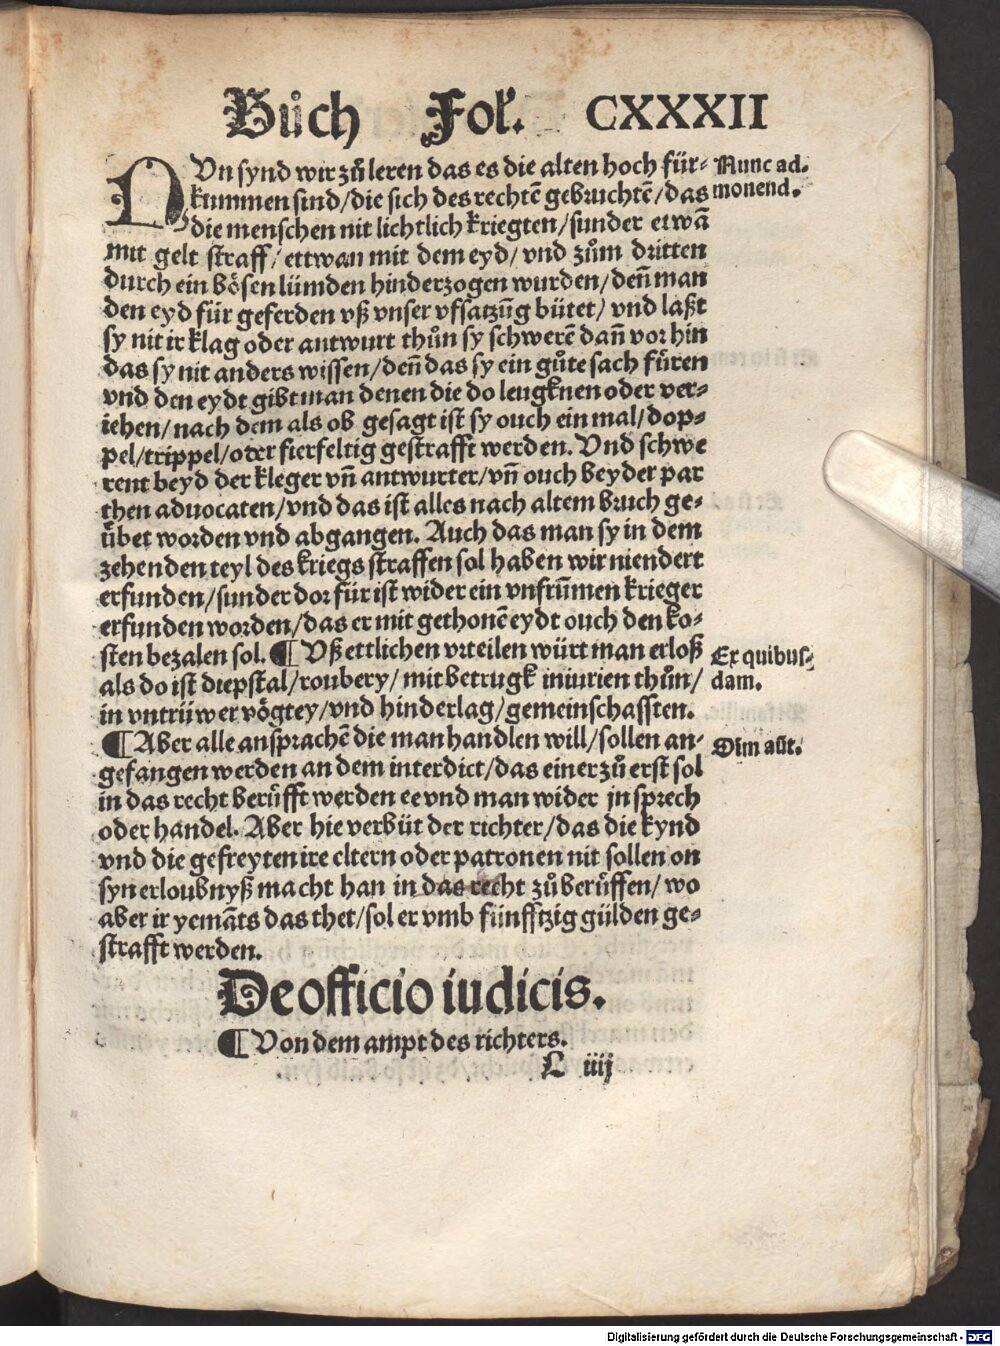 Bůch Fol'. CXXXII
NUn synd wir zů leren das es die alten hoch für⸗ Nunc ad.
kummen sind/die sich des rechtē gebruchtē/das monend.
die menschen nit lichtlich kriegten/sunder etwā
mit gelt straff/ettwan mit dem eyd/vnd zům dritten
durch ein bösen lümden hinderzogen wurden/deñ man
den eyd für geferden vß vnser vfsatzūg bütet/vnd laßt
sy nit ir klag oder antwurt thůn sy schwerē dañ vorhin
das sy nit anders wissen/deñ das sy ein gůte sach fůren
vnd den eydt gibt man denen die do leugknen oder ver⸗
iehen/nach dem als ob gesagt ist sy ouch ein mal/dop⸗
pel/trippel/oder fierfeltig gestrafft werden. Vnd schwe
rent beyd der kleger vñ antwurter/vñ ouch beyder par
then aduocaten/vnd das ist alles nach altem bruch ge⸗
übet worden vnd abgangen. Auch das man sy in dem
zehenden teyl des kriegs straffen sol haben wir niendert
erfunden/sunder dorfür ist wider ein vnfrūmen krieger
erfunden worden/das er mit gethonē eydt ouch den ko⸗
sten bezalen sol. ¶ Vß ettlichen vrteilen würt man erloß Ex quibus⸗
als do ist diepstal/roubery/mit betrugk iniurien thůn/ dam.
in vntrüwer vögtey/vnd hinderlag/gemeinschafften.
¶ Aber alle ansprachē die man handlen will/sollen an⸗ Olim aūt.
gefangen werden an dem interdict/das einer zů erst sol
in das recht berůfft werden ee vnd man wider jn sprech
oder handel. Aber hie verbüt der richter/das die kynd
vnd die gefreyten ire eltern oder patronen nit sollen on
syn erloubnyß macht han in das recht zů berůffen/wo
aber ir yemāts das thet/sol er vmb fünfftzig gülden ge⸗
strafft werden.
De officio iudicis.
¶ Von dem ampt des richters.
L iiij
Digitalisierung gefördert durch die Deutsche Forschungsgemeinschaft - DFG